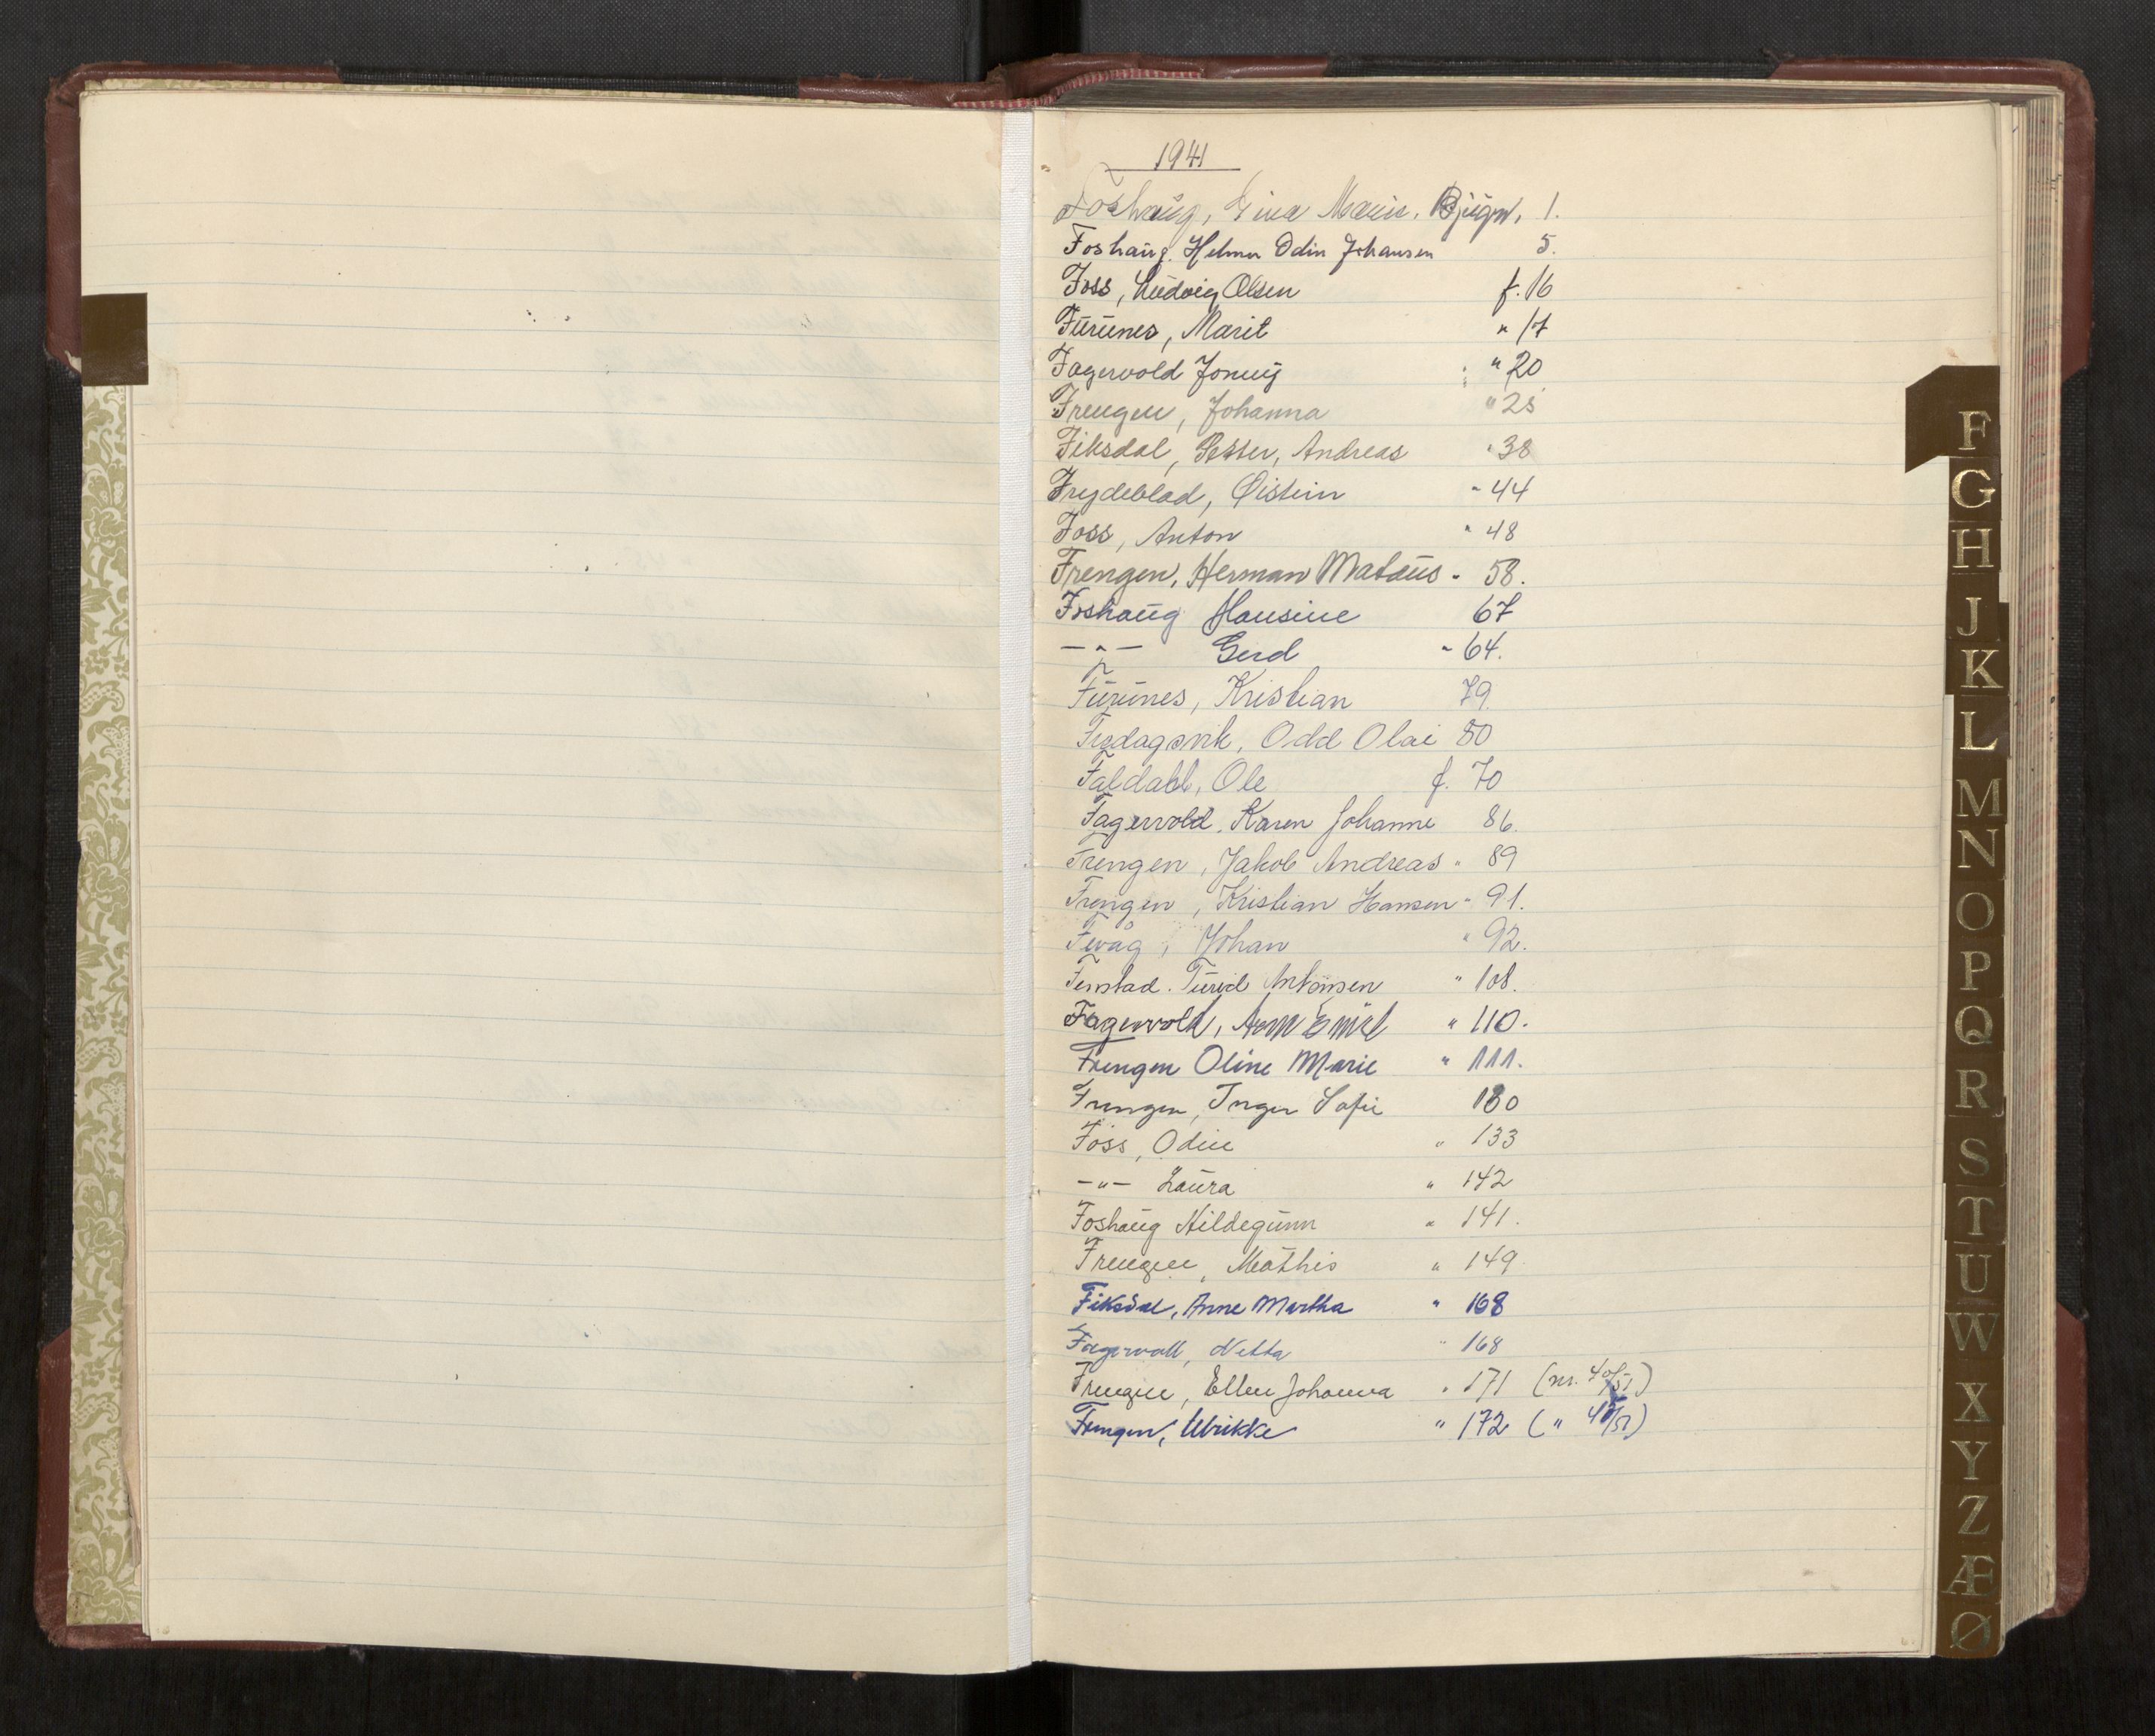 1941
Foshaug, Gina Marie, Bjugn, 1.
Foshaug. Helmer Odin Johansen 5.
Foss, Ludvig Olsen f. 16
Furunes, Marit " 17
Fagervold Jonny " 20
Frengen, Johanna " 25
Fiksdal, Petter, Andreas " 38
Frydeblad, Øistein " 44
Foss, Anton " 48
Frengen, Herman Mataus - 58.
Foshaug Hansine 67
-"- Gerd " 64.
Furunes, Kristian 79.
Fredagsvik, Odd Olai 80
Faldahl, Ole f. 70
Fagervold, Karen Johanne 86.
Frengen, Jakob Andreas " 89
Frengen, Kristian Hansen " 91.
Fevåg, Johan " 92.
Finstad. Turid Antonsen " 108.
Fagervold, Arn Emil " 110.
Frengen Oline Marie " 111.
Frengen, Inger Sofie 130
Foss, Odin " 133
-"- Laura " 142
Foshaug Hildegunn " 141.
Frengen, Mathis " 149
Fiksdal, Anne Martha " 168
Fagervoll, Netta " 168
Frengen, Ellen Johanna " 171 (nr. 40/51)
Frengen, Ulrikke " 172 ( " 41/51)
F
G
H
J
K
L
M
N
O
P
Q
R
S
T
U
W
X
Y
Z
Æ
Ø